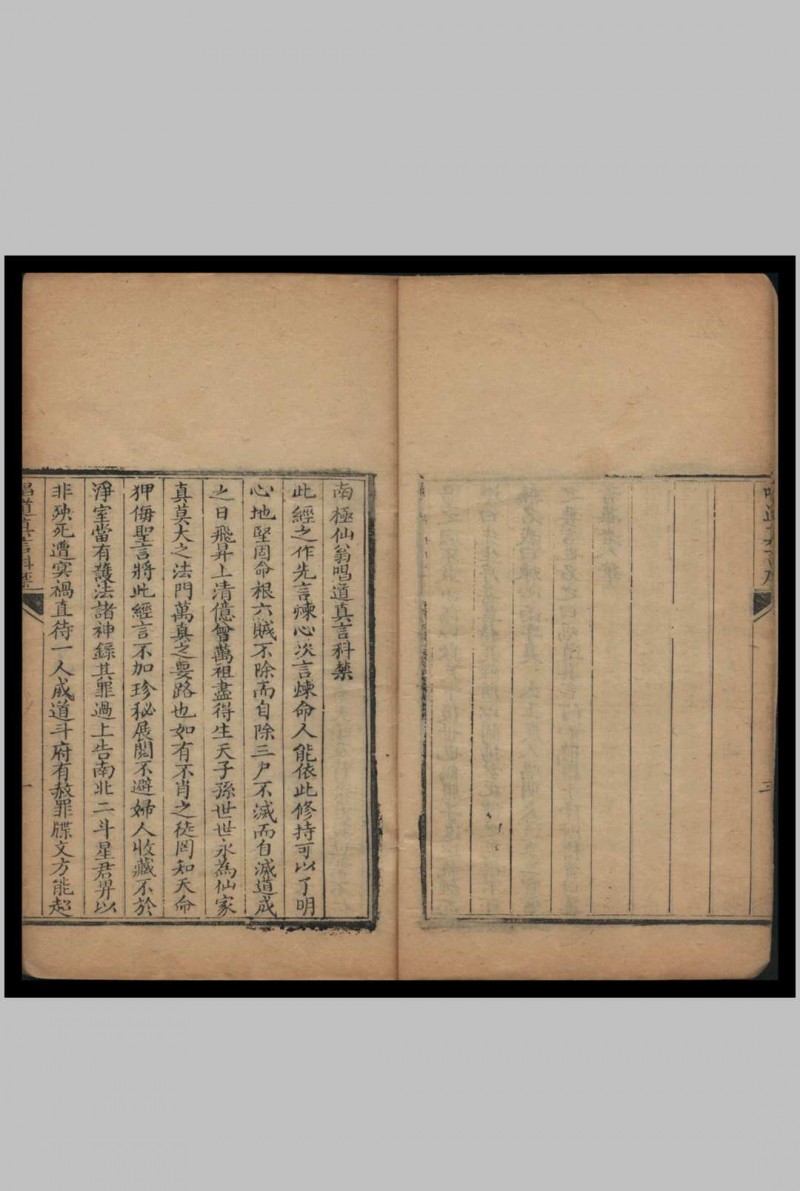 三
南極仙翁唱道真言科禁
此經之作先言煉心次言煉命人能依此修持可以了明
心地堅固命根六賊不除而自除三尸不滅而自滅道成
之日飛昇上清億曾萬祖盡得生天子孫世世永為仙家
真莫大之法門萬真之要路也如有不肖之徒罔知天命
狎侮聖言將此經言不加珍秘展閱不避婦人收藏不於
淨室當有護法諸神錄其罪過上告南北二斗星君畀以
非殃死遭灾禍直待一人成道斗府有赦罪牒文方能超
唱道真言科禁
一